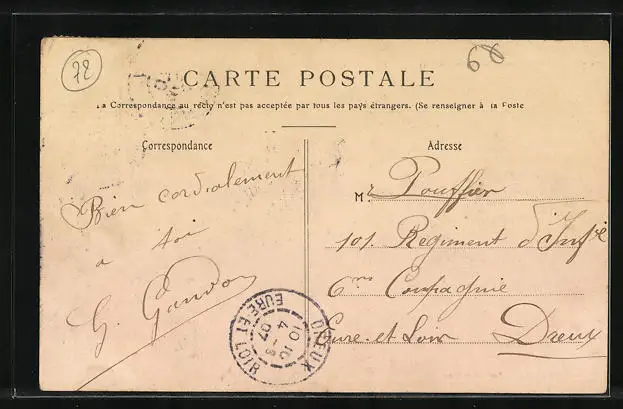 72
68
CARTE POSTALE
La Correspondance au recto n'est pas acceptée par tous les pays étrangers. (Se renseigner à la Poste
Correspondance
Adresse
Bien cordialement
a toi
G. Gandon
Mr Pouffier
101. Regiment d'Infie
6me Compagnie
Eure-et-Loir Dreux
DREUX
10 10
4 - 3
07
EURE ET LOIR